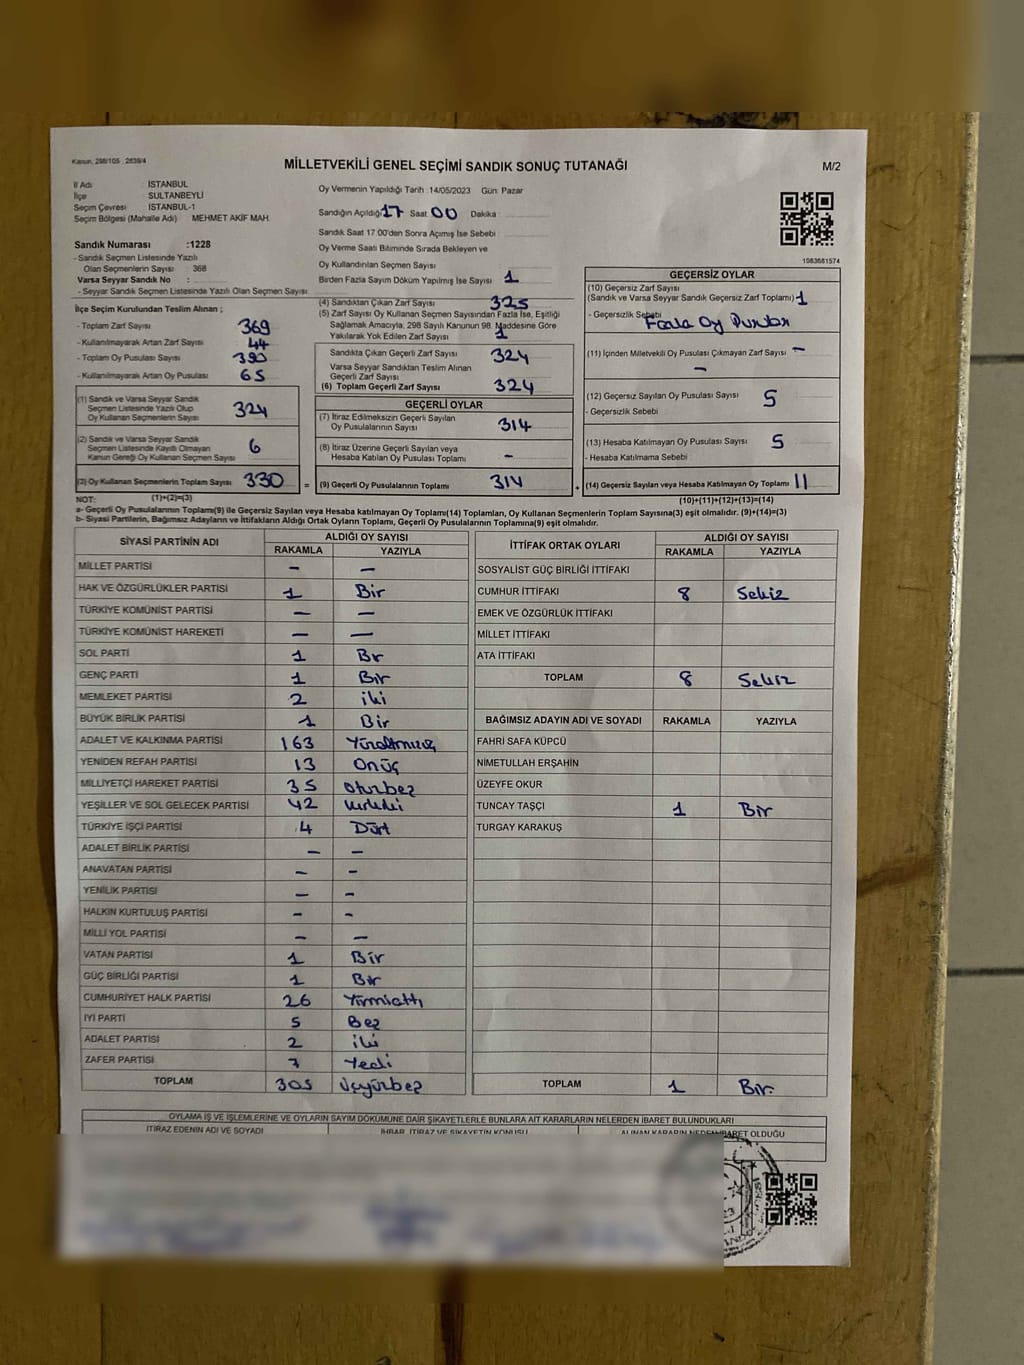 Kanun, 298/105 , 2839/4
MİLLETVEKİLİ GENEL SEÇİMİ SANDIK SONUÇ TUTANAĞI
M/2
İl Adı : İSTANBUL
İlçe : SULTANBEYLİ
Seçim Çevresi : İSTANBUL-1
Seçim Bölgesi (Mahalle Adı) MEHMET AKİF MAH.
Sandık Numarası :1228
- Sandık Seçmen Listesinde Yazılı
Olan Seçmenlerin Sayısı : 368
Varsa Seyyar Sandık No :
- Seyyar Sandık Seçmen Listesinde Yazılı Olan Seçmen Sayısı
İlçe Seçim Kurulundan Teslim Alınan ;
- Toplam Zarf Sayısı 369
- Kullanılmayarak Artan Zarf Sayısı 44
- Toplam Oy Pusulası Sayısı 390
- Kullanılmayarak Artan Oy Pusulası 65
(1) Sandık ve Varsa Seyyar Sandık
Seçmen Listesinde Yazılı Olup
Oy Kullanan Seçmenlerin Sayısı 324
(2) Sandık ve Varsa Seyyar Sandık
Seçmen Listesinde Kayıtlı Olmayan
Kanun Gereği Oy Kullanan Seçmen Sayısı 6
(3) Oy Kullanan Seçmenlerin Toplam Sayısı 330 =
Oy Vermenin Yapıldığı Tarih :14/05/2023 Gün: Pazar
Sandığın Açıldığı 17 Saat 00 Dakika :
Sandık Saat 17.00'den Sonra Açımış İse Sebebi :
Oy Verme Saati Bitiminde Sırada Bekleyen ve
Oy Kullandırılan Seçmen Sayısı
Birden Fazla Sayım Döküm Yapılmış İse Sayısı : 1
(4) Sandıktan Çıkan Zarf Sayısı 325
(5) Zarf Sayısı Oy Kullanan Seçmen Sayısından Fazla İse, Eşitliği
Sağlamak Amacıyla, 298 Sayılı Kanunun 98. Maddesine Göre
Yakılarak Yok Edilen Zarf Sayısı 1
Sandıkta Çıkan Geçerli Zarf Sayısı 324
Varsa Seyyar Sandıktan Teslim Alınan
Geçerli Zarf Sayısı
(6) Toplam Geçerli Zarf Sayısı 324
GEÇERLİ OYLAR
(7) İtiraz Edilmeksizin Geçerli Sayılan
Oy Pusulalarının Sayısı 314
(8) İtiraz Üzerine Geçerli Sayılan veya
Hesaba Katılan Oy Pusulası Toplamı -
(9) Geçerli Oy Pusulalarının Toplamı 314 +
1083681574
GEÇERSİZ OYLAR
(10) Geçersiz Zarf Sayısı
(Sandık ve Varsa Seyyar Sandık Geçersiz Zarf Toplamı) 1
- Geçersizlik Sebebi
Fazla Oy
(11) İçinden Milletvekili Oy Pusulası Çıkmayan Zarf Sayısı -
-
(12) Geçersiz Sayılan Oy Pusulası Sayısı 5
- Geçersizlik Sebebi
(13) Hesaba Katılmayan Oy Pusulası Sayısı 5
- Hesaba Katılmama Sebebi
(14) Geçersiz Sayılan veya Hesaba Katılmayan Oy Toplamı 11
NOT: (1)+(2)=(3)
(10)+(11)+(12)+(13)=(14)
a- Geçerli Oy Pusulalarının Toplamı(9) ile Geçersiz Sayılan veya Hesaba Katılmayan Oy Toplamı(14) Toplamları, Oy Kullanan Seçmenlerin Toplam Sayısına(3) eşit olmalıdır. (9)+(14)=(3)
b- Siyasi Partilerin, Bağımsız Adayların ve İttifakların Aldığı Ortak Oyların Toplamı, Geçerli Oy Pusulalarının Toplamına(9) eşit olmalıdır.
SİYASİ PARTİNİN ADI ALDIĞI OY SAYISI
RAKAMLA YAZIYLA
MİLLET PARTİSİ - -
HAK VE ÖZGÜRLÜKLER PARTİSİ 1 Bir
TÜRKİYE KOMÜNİST PARTİSİ - -
TÜRKİYE KOMÜNİST HAREKETİ - -
SOL PARTİ 1 Bir
GENÇ PARTİ 1 Bir
MEMLEKET PARTİSİ 2 iki
BÜYÜK BİRLİK PARTİSİ 1 Bir
ADALET VE KALKINMA PARTİSİ 163 Yüzaltmışüç
YENİDEN REFAH PARTİSİ 13 Onüç
MİLLİYETÇİ HAREKET PARTİSİ 35 Otuzbeş
YEŞİLLER VE SOL GELECEK PARTİSİ 42 kırkiki
TÜRKİYE İŞÇİ PARTİSİ 4 Dört
ADALET BİRLİK PARTİSİ - -
ANAVATAN PARTİSİ - -
YENİLİK PARTİSİ - -
HALKIN KURTULUŞ PARTİSİ - -
MİLLİ YOL PARTİSİ - -
VATAN PARTİSİ 1 Bir
GÜÇ BİRLİĞİ PARTİSİ 1 Bir
CUMHURİYET HALK PARTİSİ 26 Yirmialtı
İYİ PARTİ 5 Beş
ADALET PARTİSİ 2 iki
ZAFER PARTİSİ 7 Yedi
TOPLAM 305 Üçyüzbeş
İTTİFAK ORTAK OYLARI ALDIĞI OY SAYISI
RAKAMLA YAZIYLA
SOSYALİST GÜÇ BİRLİĞİ İTTİFAKI
CUMHUR İTTİFAKI 8 Sekiz
EMEK VE ÖZGÜRLÜK İTTİFAKI
MİLLET İTTİFAKI
ATA İTTİFAKI
TOPLAM 8 Sekiz
BAĞIMSIZ ADAYIN ADI VE SOYADI RAKAMLA YAZIYLA
FAHRİ SAFA KÜPCÜ
NİMETULLAH ERŞAHİN
ÜZEYFE OKUR
TUNCAY TAŞÇI 1 Bir
TURGAY KARAKUŞ
TOPLAM 1 Bir.
OYLAMA İŞ VE İŞLEMLERİNE VE OYLARIN SAYIM DÖKÜMÜNE DAİR ŞİKAYETLERLE BUNLARA AİT KARARLARIN NELERDEN İBARET BULUNDUKLARI
İTİRAZ EDENİN ADI VE SOYADI İHBAR, İTİRAZ VE ŞİKAYETİN KONUSU ALINAN KARARIN NEDEN İBARET OLDUĞU